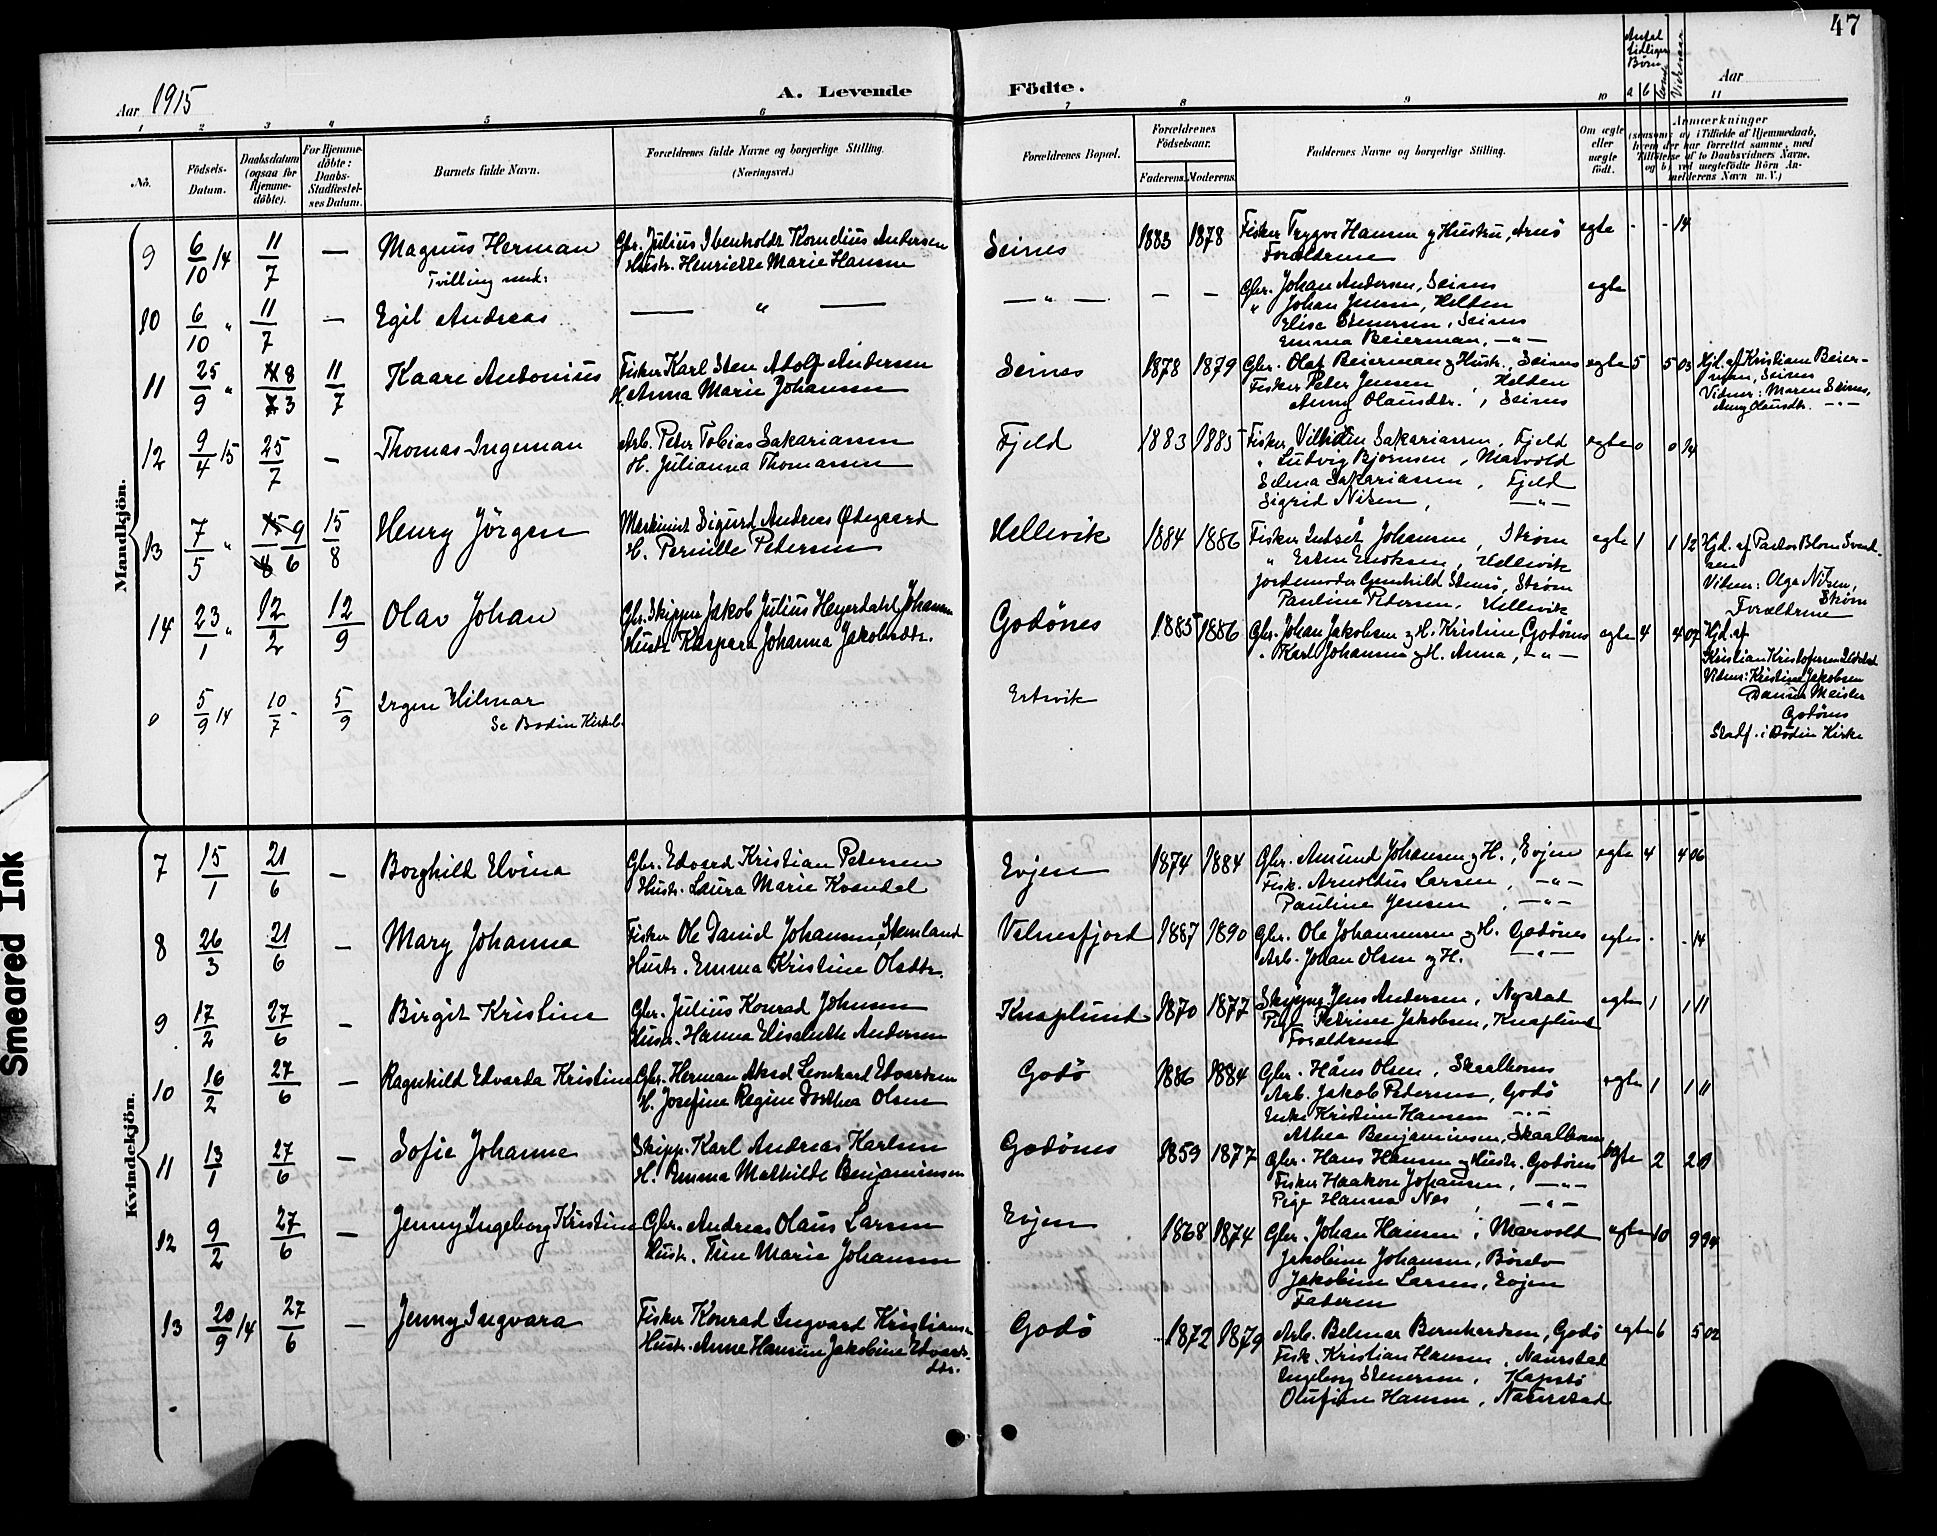 47
Aar 1915
A. Levende Födte.
Aar
Antal tidligere Børn
a b
1 2 3 4 5 6 7 8 9 10 11
No.
Födsels-Datum.
Daabsdatum (ogsaa for Hjemme-döbte).
For Hjemme-döbte: Daabs-Stadfæstel-ses Datum.
Barnets fulde Navn.
Forældrenes fulde Navne og borgerlige Stilling. (Næringsvei.)
Forældrenes Bopæl.
Forældrenes Födselsaar.
Faderens. Moderens.
Faddernes Navne og borgerlige Stilling.
Om ægte eller uægte födt.
Anmærkninger
(saasom: a) i Tilfælde af Hjemmedaab, hvem der har forrettet samme, med Tilföielse af to Daabsvidners Navne, og b) ved uægtefödte Börn Anmelderens Navn m. V.)
Mandkjön.
9 6/10 14 11/7 — Magnus Herman
Tvilling med:
Gbr. Julius Ibenholdt Kornelius Andersen
Hustr. Henriette Marie Hansen
Seines 1883 1878
Fisker Trygve Hansen og Hustru, Arnø
Forældrene
egte - - 14
10 6/10 " 11/7 — Egil Andreas
— " —
— " — — —
Gbr. Johan Andersen, Seines
" Johan Jensen, Helden
Elise Stenersen, Seines
Emma Beierman, —"—
egte
11 25/9 " 8/3 11/7 Kaare Antonius
Fisker Karl Sten Adolf Andersen
H. Anna Marie Johansen
Seines 1878 1879
Gbr. Olaf Beierman og Hustr., Seines
Fisker Peter Jensen, Helden
Anny Olausdtr., Seines
egte 5 5 03
Hjd. af Kristiane Beierman, Seines
Vidner: Maren Seines,
Anny Olausdtr. —"—
12 9/4 15 25/7 - Thomas Ingeman
Arb. Peter Tobias Sakariassen
H. Julianna Thomassen
Fjeld 1883 1885
Fisker Vilhelm Sakariassen, Fjeld
" Ludvig Bjørnsen, Marvold
Selma Sakariassen, Fjeld
Sigrid Nilsen, —"—
egte 0 0 14
13 7/5 " 9/6 15/8 Henry Jörgen
Maskinist Sigurd Andreas Ødegaard
H. Pernille Petersen
Hellevik 1884 1886
Fisker Johansen, Strøm
" Eriksen, Hellevik
Jordemoder Gunhild Stenø, Strøm
Pauline Petersen, Hellevik
egte 1 1 12
Hjd. af Pastor Blom Svendsen
Vidner: Olga Nilsen, Strøm
Forældrene
14 23/1 " 12/2 12/9 Olav Johan
Gbr. Skipper Jakob Julius Heyerdahl Johansen
Hustr. Kaspara Johanna Jakobsdtr.
Godønes 1885 1886
Gbr. Johan Jakobsen og H. Kristine, Godønes
" Karl Johansen og H. Anna, —"—
egte 4 4 07
Hjd. af
Kristian Kristofersen
Vidner: Kristine Jakobsen
Meisler
Godønes
Stadf. i Bodin Kirke
0 5/9 14 10/7 - 5/9 Hilmar
Se Bodin Kirkeb.
Ertsvik
Kvindekjön.
7 15/1 21/6 — Borghild Elvina
Gbr. Edvard Kristian Petersen
Hustr. Laura Marie Kvandal
Evjen 1874 1884
Gbr. Amund Johansen og H., Evjen
Fisk. Arnoldus Larsen, —"—
Pauline Jensen, —"—
egte 4 4 06
8 26/3 21/6 — Mary Johanna
Fisker Ole Daniel Johansen, Stemland
Hustr. Emma Kristine Olsdtr.
Valnesfjord 1887 1890
Gbr. Ole Johannesen og H. Godønes
Arb. Johan Olsen og H. —"—
egte - - 14
9 17/2 27/6 — Birgit Kristine
Gbr. Julius Konrad Johnsen
Hustr. Hanna Elisabeth Andersen
Knaplund 1870 1877
Skipper Jens Andersen, Nystad
Pige Petrine Jakobsen, Knaplund
Forældrene
egte 1 1 11
10 16/2 27/6 — Ragnhild Edvarda Kristine
Gbr. Herman Aksel Leonhard Edvardsen
H. Josefine Regine Dorthea Olsen
Godø 1886 1884
Gbr. Hans Olsen, Skaalbones
Arb. Jakob Petersen, Godø
Enke Kristine Hansen —"—
Althea Benjaminsen, Skaalbones
egte 1 1 11
11 13/1 27/6 — Sofie Johanne
Skipp. Karl Andreas Karlsen
H. Emma Mathilde Benjaminsen
Godønes 1859 1877
Gbr. Hans Hansen og Hustr. Godønes
Fisker Haakon Johansen, —"—
Pige Hanna Næs, —"—
egte 2 2
12 9/2 27/6 — Jenny Ingeborg Kristine
Gbr. Andreas Olaus Larsen
Hustr. Tine Marie Johansen
Evjen 1868 1874
Gbr. Johan Hansen, Marvold
Jakobine Johansen,
Jakobine Larsen, Evjen
Faderen
egte 10 9 94
13 20/9 14 27/6 — Jenny Ingvara
Fisker Konrad Ingvard Kristiansen
Hustr. Anne Hansine Jakobine Edvardsdtr.
Godø 1872 1879
Arb. Belmar Bernhardsen, Godø
Fisk. Kristian Hansen, Naurstad
Ingeborg Stenersen,
Olufine Hansen, Naurstad
egte 6 5 02
Smeared Ink